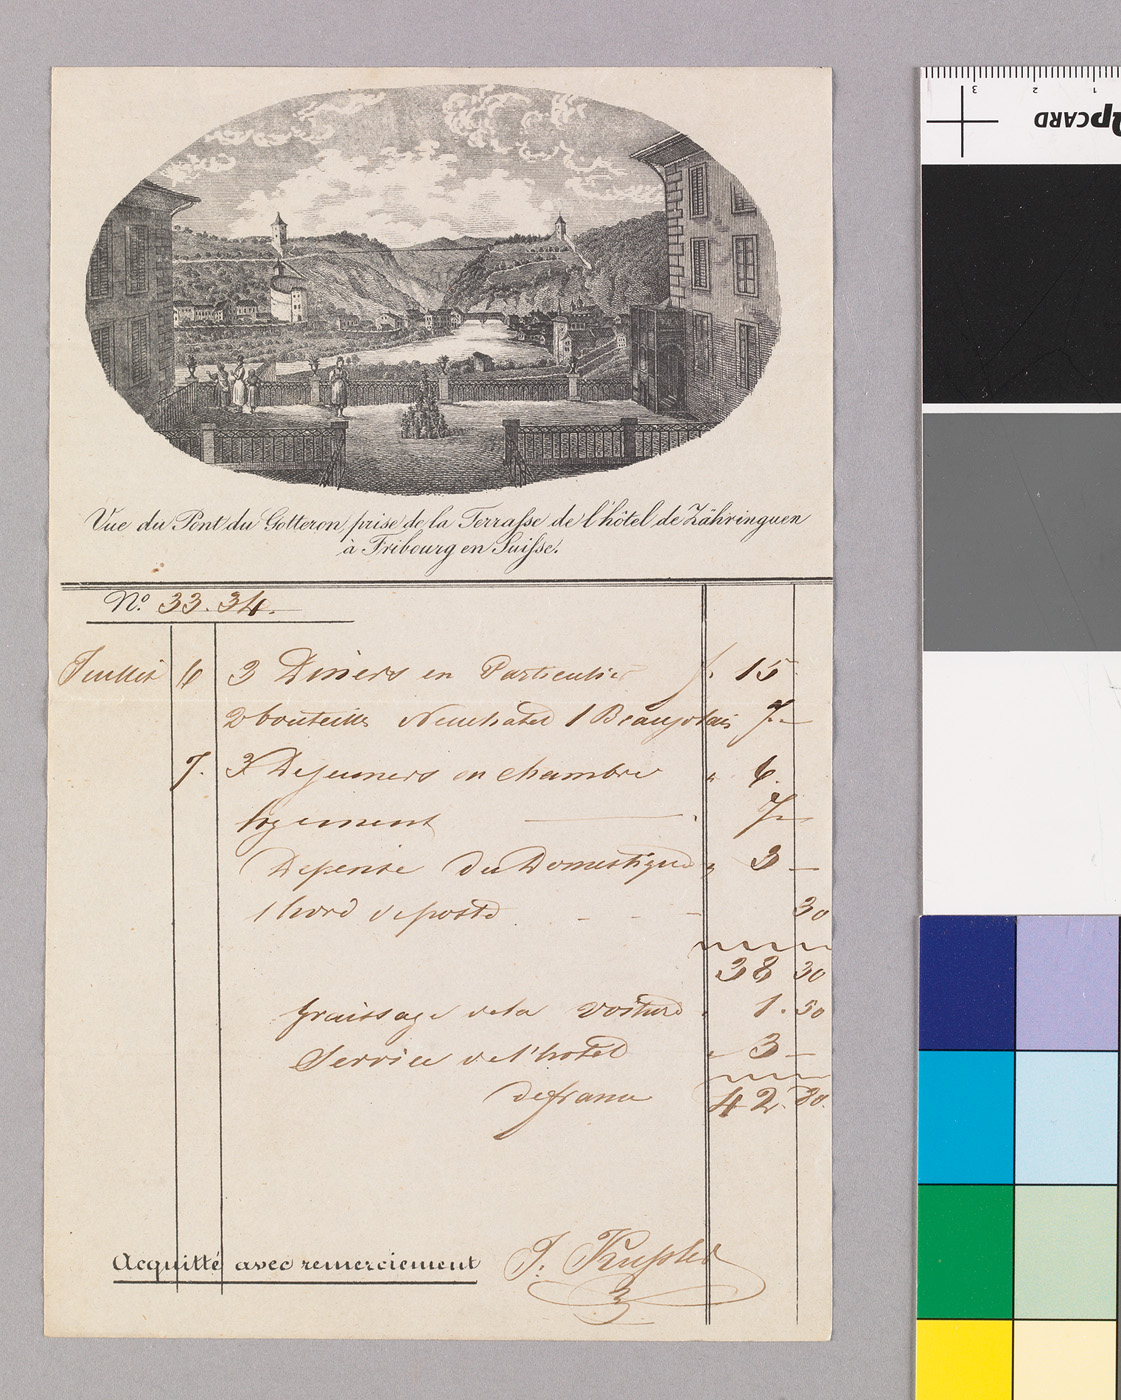 Vue du Pont du Gotteron, prise de la Terraſse de l'hôtel de Zähringuen
à Fribourg en Suiſse.
No. 33. 34.
Juillet 6 3 Diners en Particulier f. 15
2 bouteilles Neuchatel 1 Beaujolais 7.-
7. 3 Dejeuners en chambre " 6.
logement 7-
Depense du Domestique " 3 -
1 bord de poste - - - 30
38 30
graissage de la voiture " 1. 50
Service de l'hotel " 3 -
de france 42. 80.
Acquitté avec remerciement J.
3 2 1
CARD